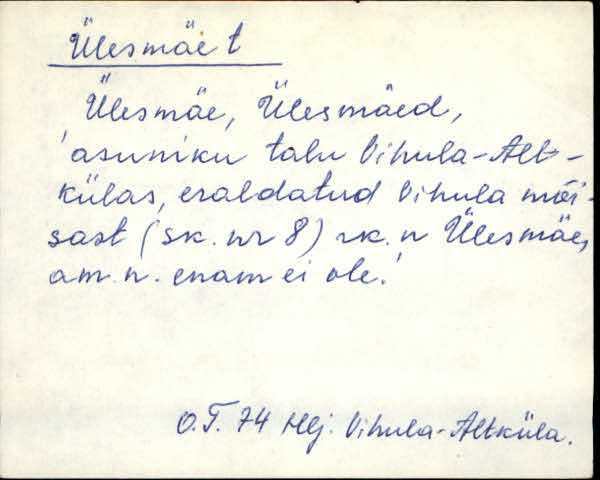 Ülesmäe t
Ülesmäe, Ülesmäed,
'asuniku talu Vihula-Alt-
külas, eraldatud Vihula mõi-
sast (sk. nr 8) rk. n Ülesmäe,
am. n. enam ei ole.'
O.T. 74 Hlj. Vihula-Altküla.